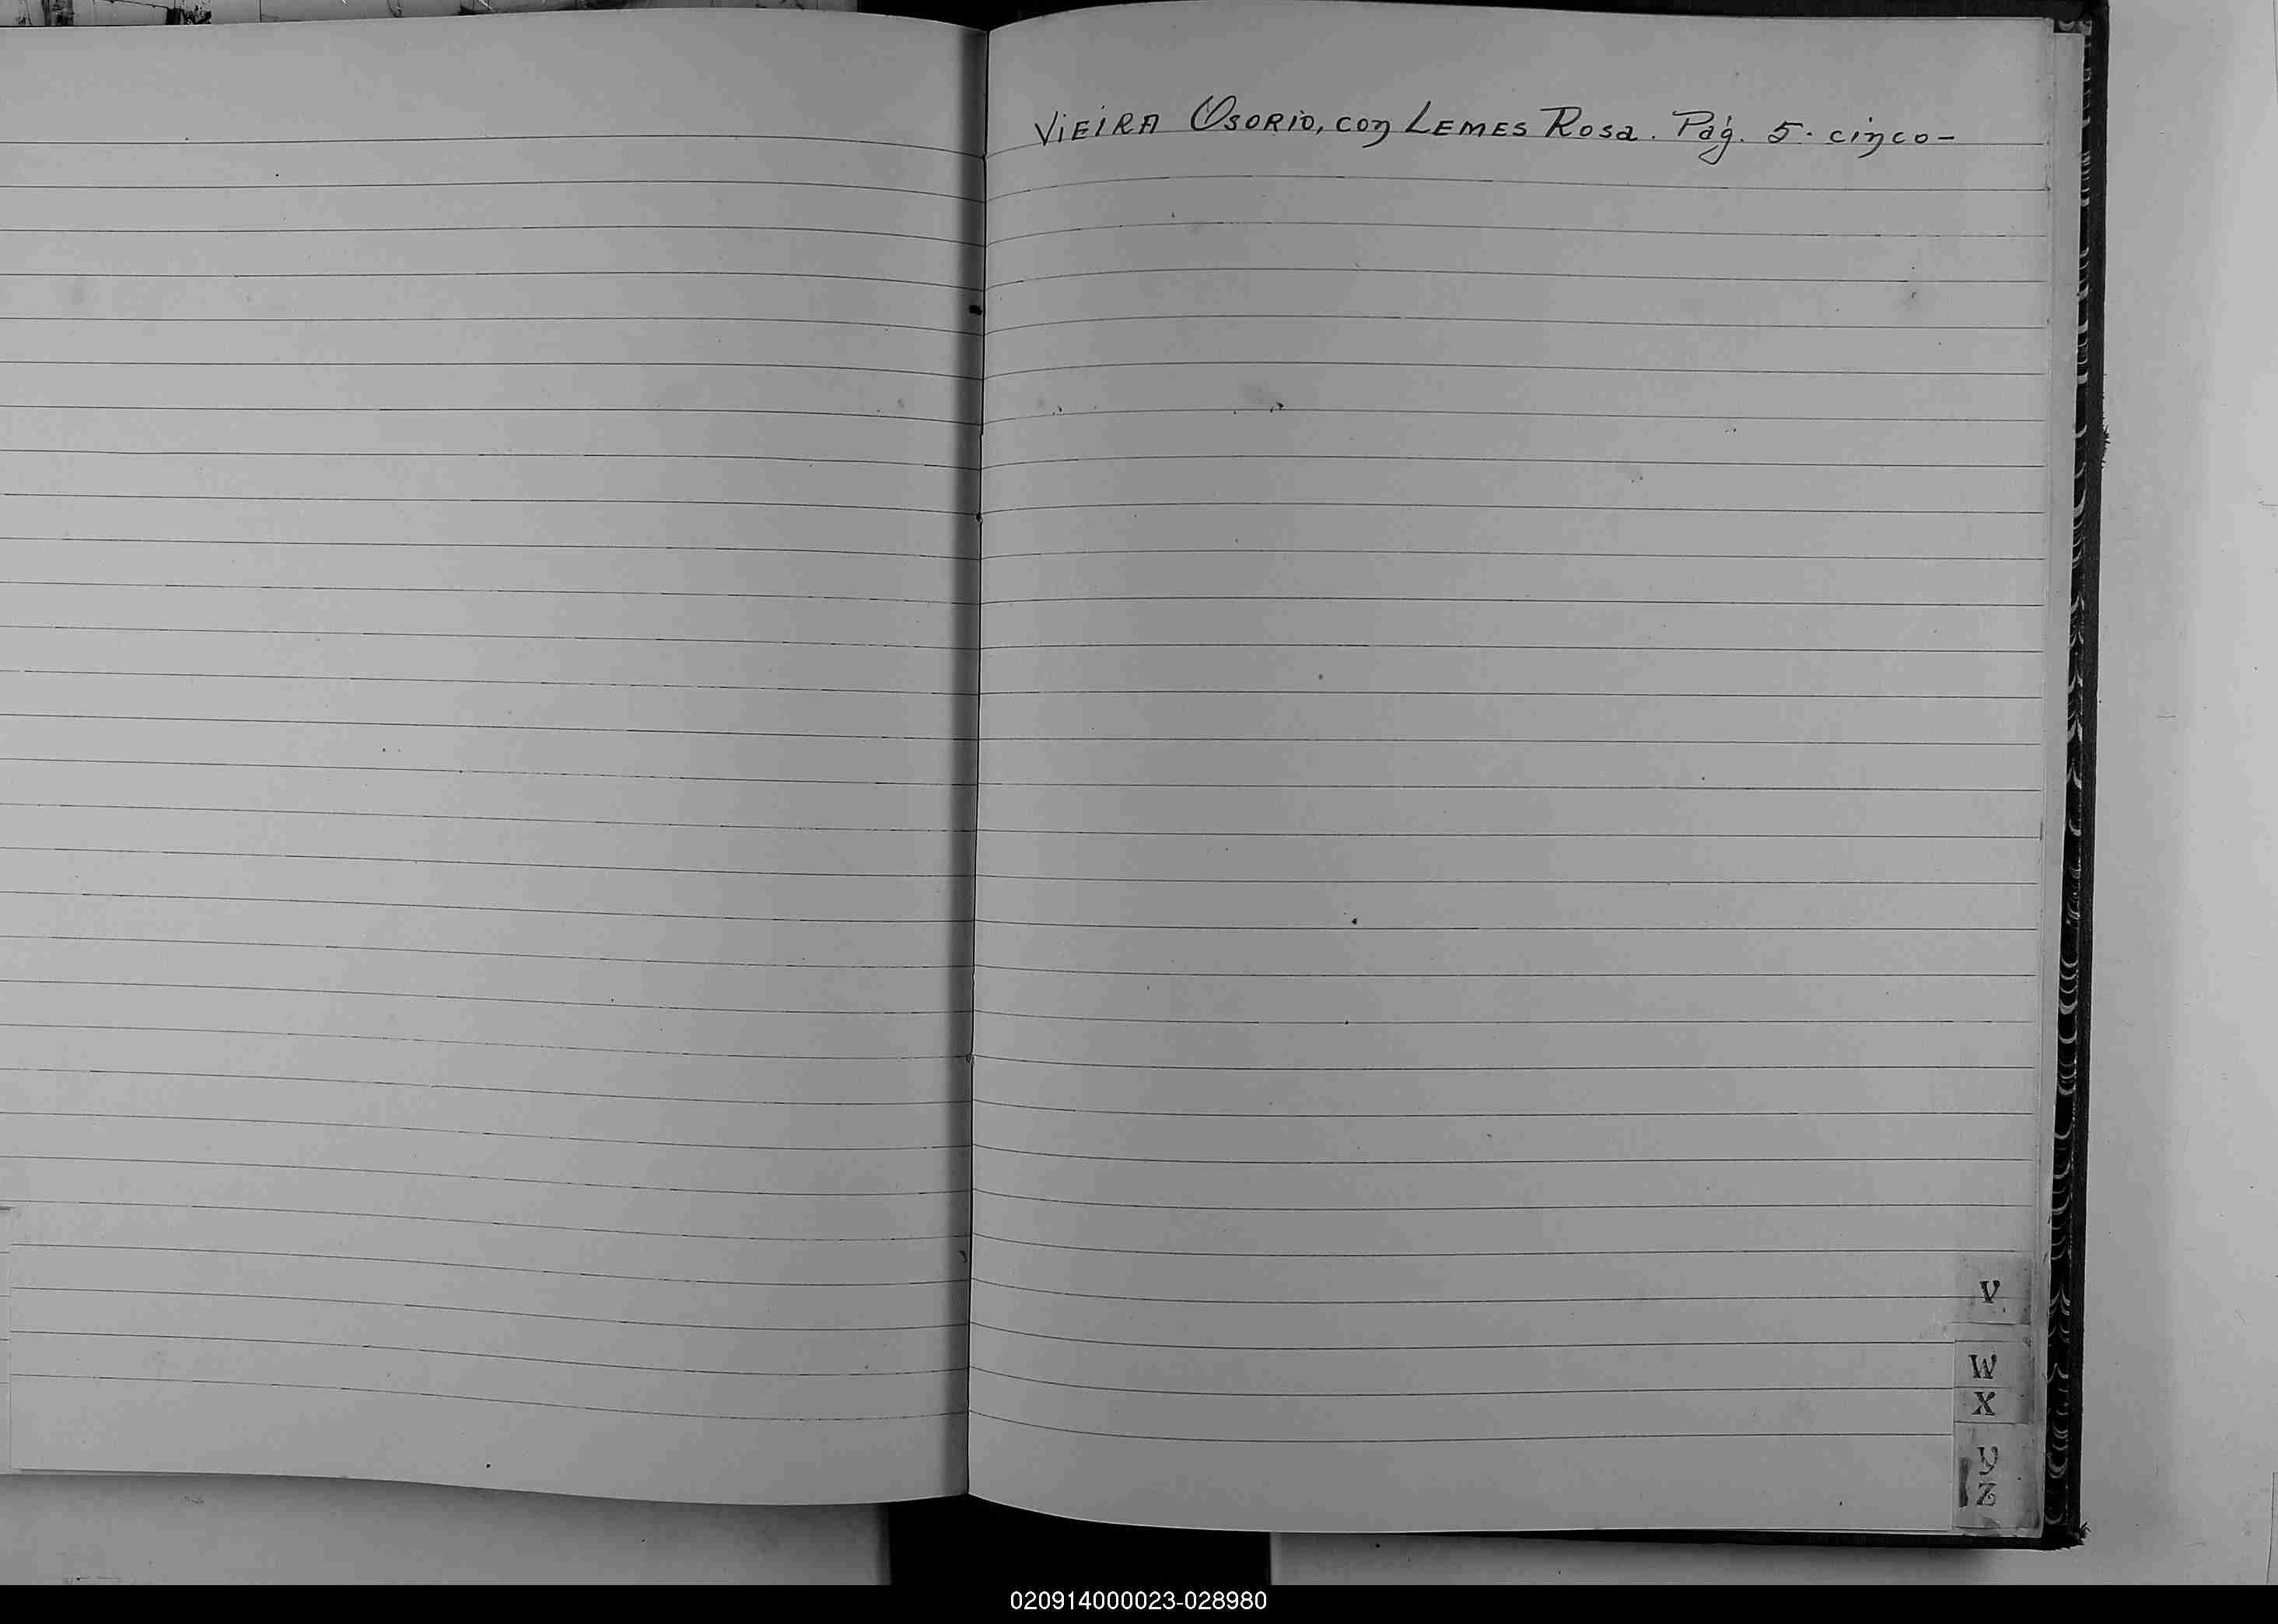 VIEIRA OSORIO, con LEMES Rosa. Pág. 5. cinco-
V
W
X
Y
Z
020914000023-028980